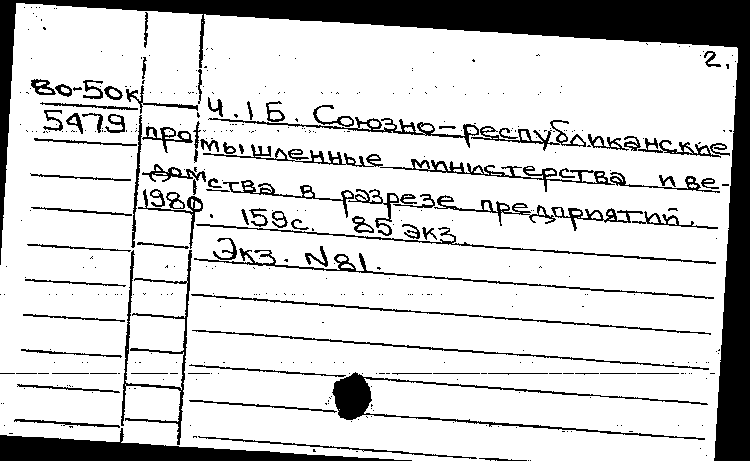 2.
80-50к
5479
Ч.1Б. Союзно-республиканские
промышленные министерства и ве-
домства в разрезе предприятий.
1980. 159с. 85 экз.
Экз. N81.